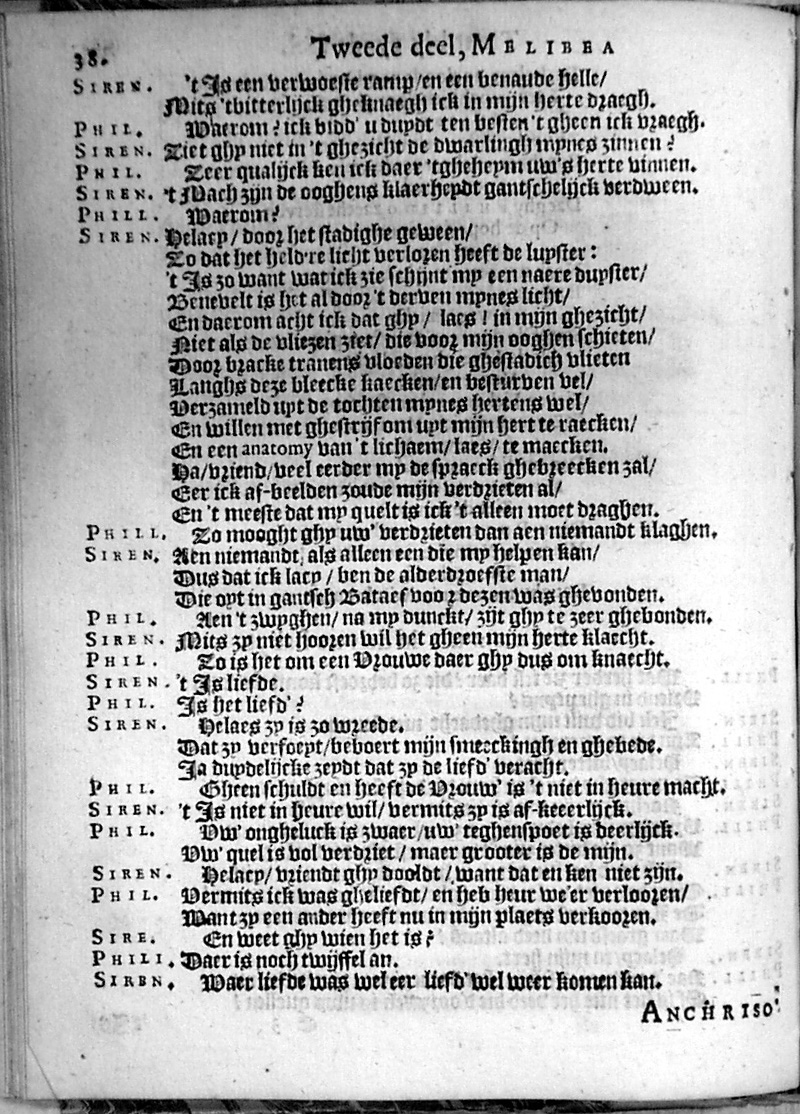 38. Tweede deel, MELIBEA
SIREN. 't Is een verwoeste ramp/ en een benaude helle/
Mits 'tbitterlijck gheknaegh ick in mijn herte draegh.
PHIL. Waerom? ick bidd' u duydt ten besten 't gheen ick vraegh.
SIREN. Ziet ghy niet in 't ghezicht de dwarlingh mynes zinnen?
PHIL. Zeer qualijck ken ick daer 'tgheheym uw's herte vinnen.
SIREN. 't Mach zijn de ooghens klaerheydt gantschelijck verdween.
PHILL. Waerom?
SIREN. Helacy/ door het stadighe geween/
Zo dat het held're licht verloren heeft de luyster:
't Is zo want wat ick zie schijnt my een naere duyster/
Benevelt is het al door 't derven mynes licht/
En daerom acht ick dat ghy/ laes! in mijn ghezicht/
Niet als de vliezen ziet/ die voor mijn ooghen schieten/
Door bracke tranens vloeden die ghestadich vlieten
Langhs deze bleecke kaecken/ en besturven vel/
Verzameld uyt de tochten mynes hertens wel/
En willen met ghestrijf om uyt mijn hert te raecken/
En een anatomy van 't lichaem/ laes/ te maecken.
Ha/ vriend/ veel eerder my de spraeck ghebreecken zal/
Eer ick af-beelden zoude mijn verdrieten al/
En 't meeste dat my quelt is ick 't alleen moet draghen.
PHILL. Zo mooght ghy uw' verdrieten dan aen niemandt klaghen.
SIREN. Aen niemandt, als alleen een die my helpen kan/
Dus dat ick lacy/ ben de alderdroefste man/
Die oyt in gantsch Bataef voor dezen was ghevonden.
PHIL. Aen 't zwyghen/ na my dunckt/ zijt ghy te zeer ghebonden.
SIREN. Mits zy niet hooren wil het gheen mijn herte klaecht.
PHIL. Zo is het om een Vrouwe daer ghy dus om knaecht.
SIREN. 't Is liefde.
PHIL. Is het liefd'?
SIREN. Helaes zy is zo wreede.
Dat zy verfoeyt/ beboert mijn smeeckingh en ghebede.
Ja duydelijcke zeydt dat zy de liefd' veracht.
PHIL. Gheen schuldt en heeft de Vrouw' is 't niet in heure macht.
SIREN. 't Is niet in heure wil/ vermits zy is af-keeerlijck.
PHIL. Uw' ongheluck is zwaer/ uw' teghenspoet is deerlijck.
Uw' quel is vol verdriet/ maer grooter is de mijn.
SIREN. Helacy/ vriendt ghy dooldt/ want dat en ken niet zijn.
PHIL. Vermits ick was gheliefdt/ en heb heur we'er verlooren/
Want zy een ander heeft nu in mijn plaets verkooren.
SIRE. En weet ghy wien het is?
PHILI. Daer is noch twyffel an.
SIREN. Waer liefde was wel eer liefd' wel weer komen kan.
ANCHRISO'